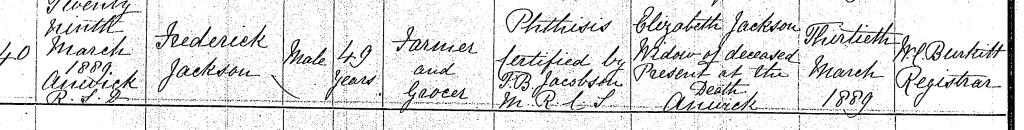 40
Twenty
Ninth
March
1889
Anwick
R. S. D
Frederick
Jackson
Male
49
years
Farmer
and
Grocer
Phthisis
Certified by
T. B Jacobson
M. R. C. S
Elizabeth Jackson
Widow of deceased
Present at the
Death
Anwick
Thirtieth
March
1889
W. C. Burkitt
Registrar